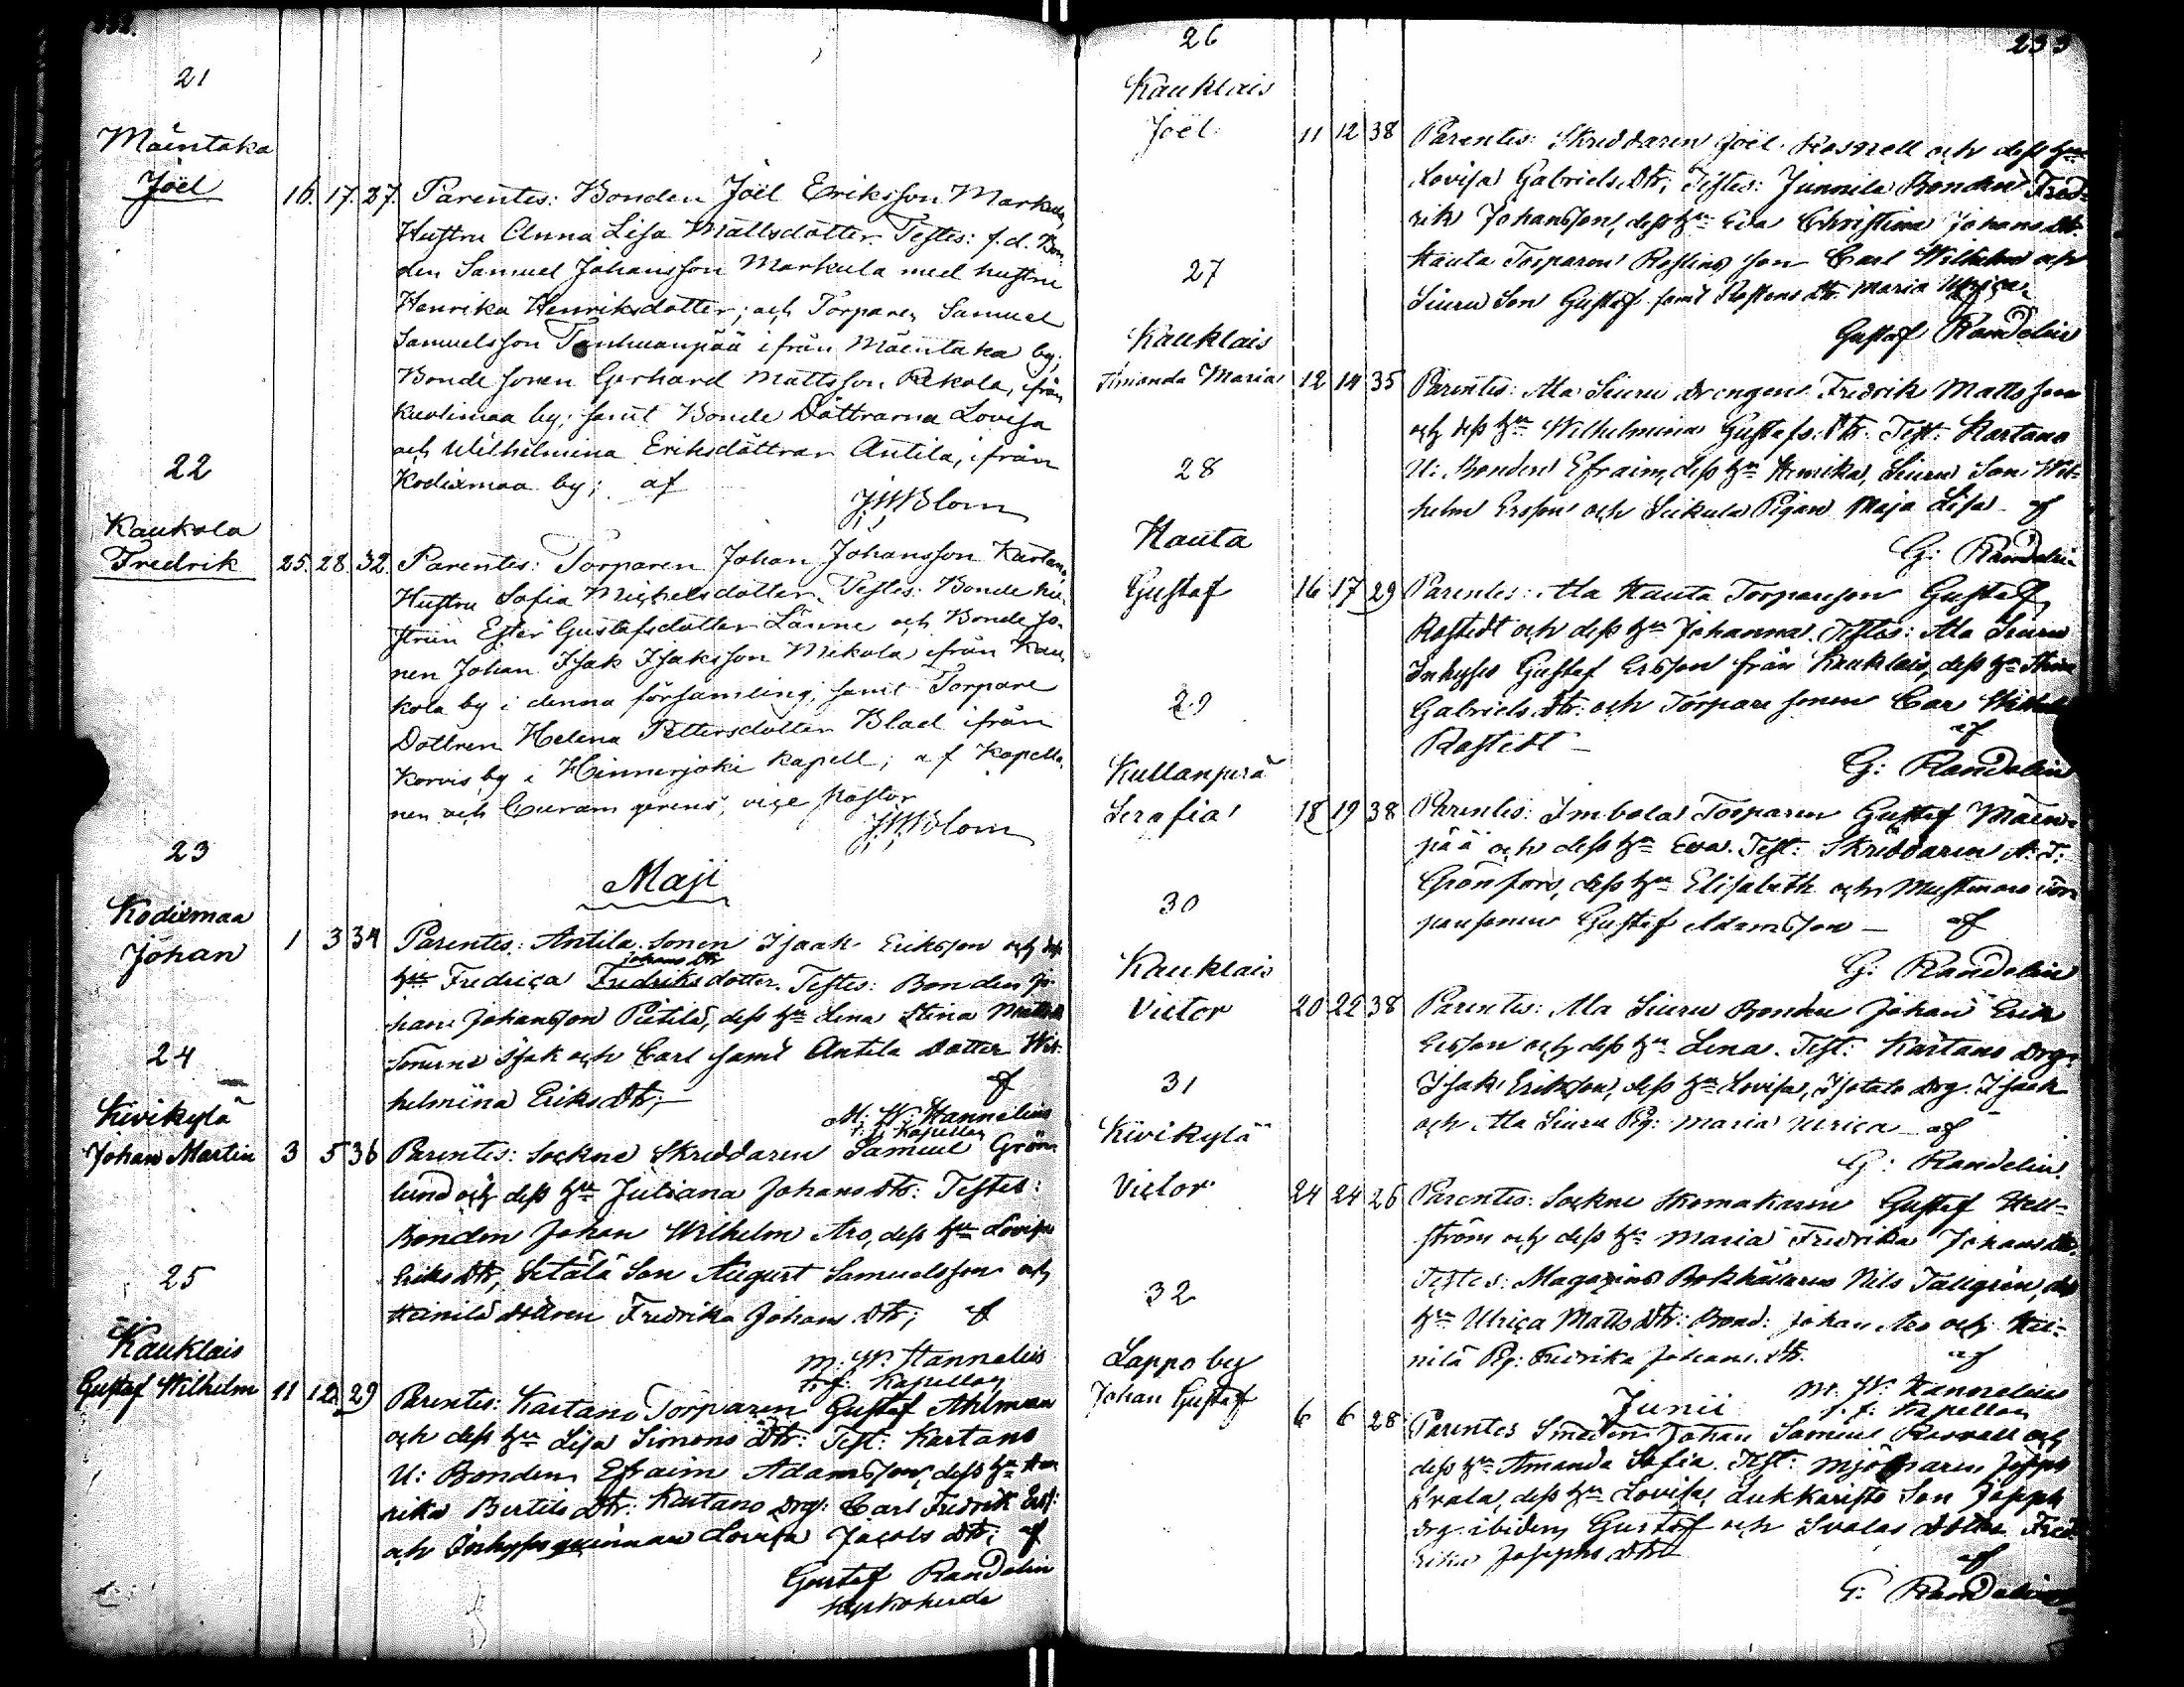 232.
21
Mäentaka
Joël 16. 17. 27. Parentes: Bonden Joël Eriksson Markula,
Hustru Anna Lisa Mattsdotter. Testes: f.d. Bon-
den Samuel Johansson Markula med hustru
Henrika Henriksdotter; och Torparen Samuel
Samuelsson Tanhuanpää ifrån Mäentaka by;
Bonde sonen Gerhard Mattsson Rekola, ifrån
Kuolimaa by; samt Bonde Döttrarna Lovisa
och Wilhelmina Eriksdöttrar Antila, ifrån
Kodixmaa by; af
J.W. Blom
22
Kaukola
Fredrik 25. 28. 32. Parentes: Torparen Johan Johansson Kartano,
Hustru Sofia Michelsdotter. Testes: Bonde hu-
strun Ester Gustafsdotter Länne och Bonde so-
nen Johan Isak Isaksson Mikola ifrån Kau-
kola by i denna församling; samt Torpare
Dottren Helena Pettersdotter Blad ifrån
Korvis by i Hinnerjoki kapell; af Kapella-
nen och Curam gerens, vice pastor
J.W. Blom
Maji
23
Kodixmaa
Johan 1 3 34 Parentes: Antila sonen Isaak Eriksson och dess
hu Fredrica Fredriksdotter. Testes: Bonden Jo-
Johans Dtr
han Johansson Pietilä, dess hu Lena Stina Matts
Sönerne Isak och Carl samt Antila Dotter Wil-
helmina Eriks Dtr; af
M: W: Hannelius
t. f. Kapellan
24
Kivikylä
Johan Martin 3 5 36 Parentes: Sockne Skreddaren Samuel Grön-
lund och dess hu Juliana Johans Dtr: Testes:
Bonden Johan Wilhelm Aro, dess hu Lovisa
Eriks Dtr, Setälä Son August Samuelsson och
Heinilä Dottren Fredrika Johans Dtr; af
M: W: Hannelius
t. f. Kapellan
25
Kauklais
Gustaf Wilhelm 11 12 29 Parentes: Kartano Torparen Gustaf Ahlman
och dess hu Lisa Simons Dtr: Test: Kartano
U: Bonden Efraim Adamsson, dess hu Hen-
rika Bertils Dtr: Kartano Drg: Carl Fredrik Ers:
och Inhyses qvinnan Lovisa Jacobs Dtr; af
Gustaf Randelin
Kyrkoherde
233
26
Kauklais
Joël 11 12 38 Parentes: Skreddaren Joël Rosnell och dess hu
Lovisa Gabriels Dtr; Testes: Junnila Bonden Fred-
rik Johansson, dess hu Eva Christina Johans Dtr.
Hauta Torparens son Carl Wilhelm och
Siuru Son Gustaf samt Dtr. Maria Ulrica
Gustaf Randelin
27
Kauklais
Amanda Maria 12 14 35 Parentes: Ala Siuru Drengen Fredrik Matts son
och dess hu Wilhelmina Gustafs Dtr. Test: Kartano
U: Bonden Efraim, dess hu Henrika, Siuru Son Wil-
helm Ersson och Seikula Pigan Maja Lisa. af
G: Randelin
28
Hauta
Gustaf 16 17 29 Parentes: Ala Hauta Torparson Gustaf
Rostedt och dess hu Johanna. Testes: Ala Siuru
Inhyses Gustaf Ersson från Kauklais, dess hu Stina
Gabriels Dtr: och Torpare sonen Carl
Rostedt af
G: Randelin
29
Kullanperä
Serafia 18 19 38 Parentes: Imbola Torparen Gustaf Mäen-
pää och dess hu Eva. Test: Skreddaren A: J:
Grönfors, dess hu Elisabeth och Mustmaro Tor-
paresonen Gustaf Adamsson af
G: Randelin
30
Kauklais
Victor 20 22 38 Parentes: Ala Siuru Bonden Johan Erik
Ersson och dess hu Lena. Test: Kartano Drg:
Isak Eriksson, dess hu Lovisa, Isotalo Drg. Isaak
och Ala Siuru Pig: Maria Ulrica af
G: Randelin
31
Kivikylä
Victor 24 24 26 Parentes: Sockne Skomakaren Gustaf Hell-
ström och dess hu Maria Fredrika Johans Dtr.
Testes: Magazins Bokhållaren Nils Tallgrén, dess
hu Ulrica Matts Dtr: Bond: Johan Aro och Hei-
nilä Pig: Fredrika Johans Dtr. af
M. W. Hannelius
t. f. Kapellan
Junii
32
Lappo by
Johan Gustaf 6 6 28 Parentes Smeden Johan Samuel Rosvall och
dess hu Amanda Sofia. Test: Mjölnaren Joseph
Svala, dess hu Lovisa, Son Joseph
Drg ibidem Gustaf och Svalas Dotter Fred-
rika Josephs Dtr af
G: Randelin